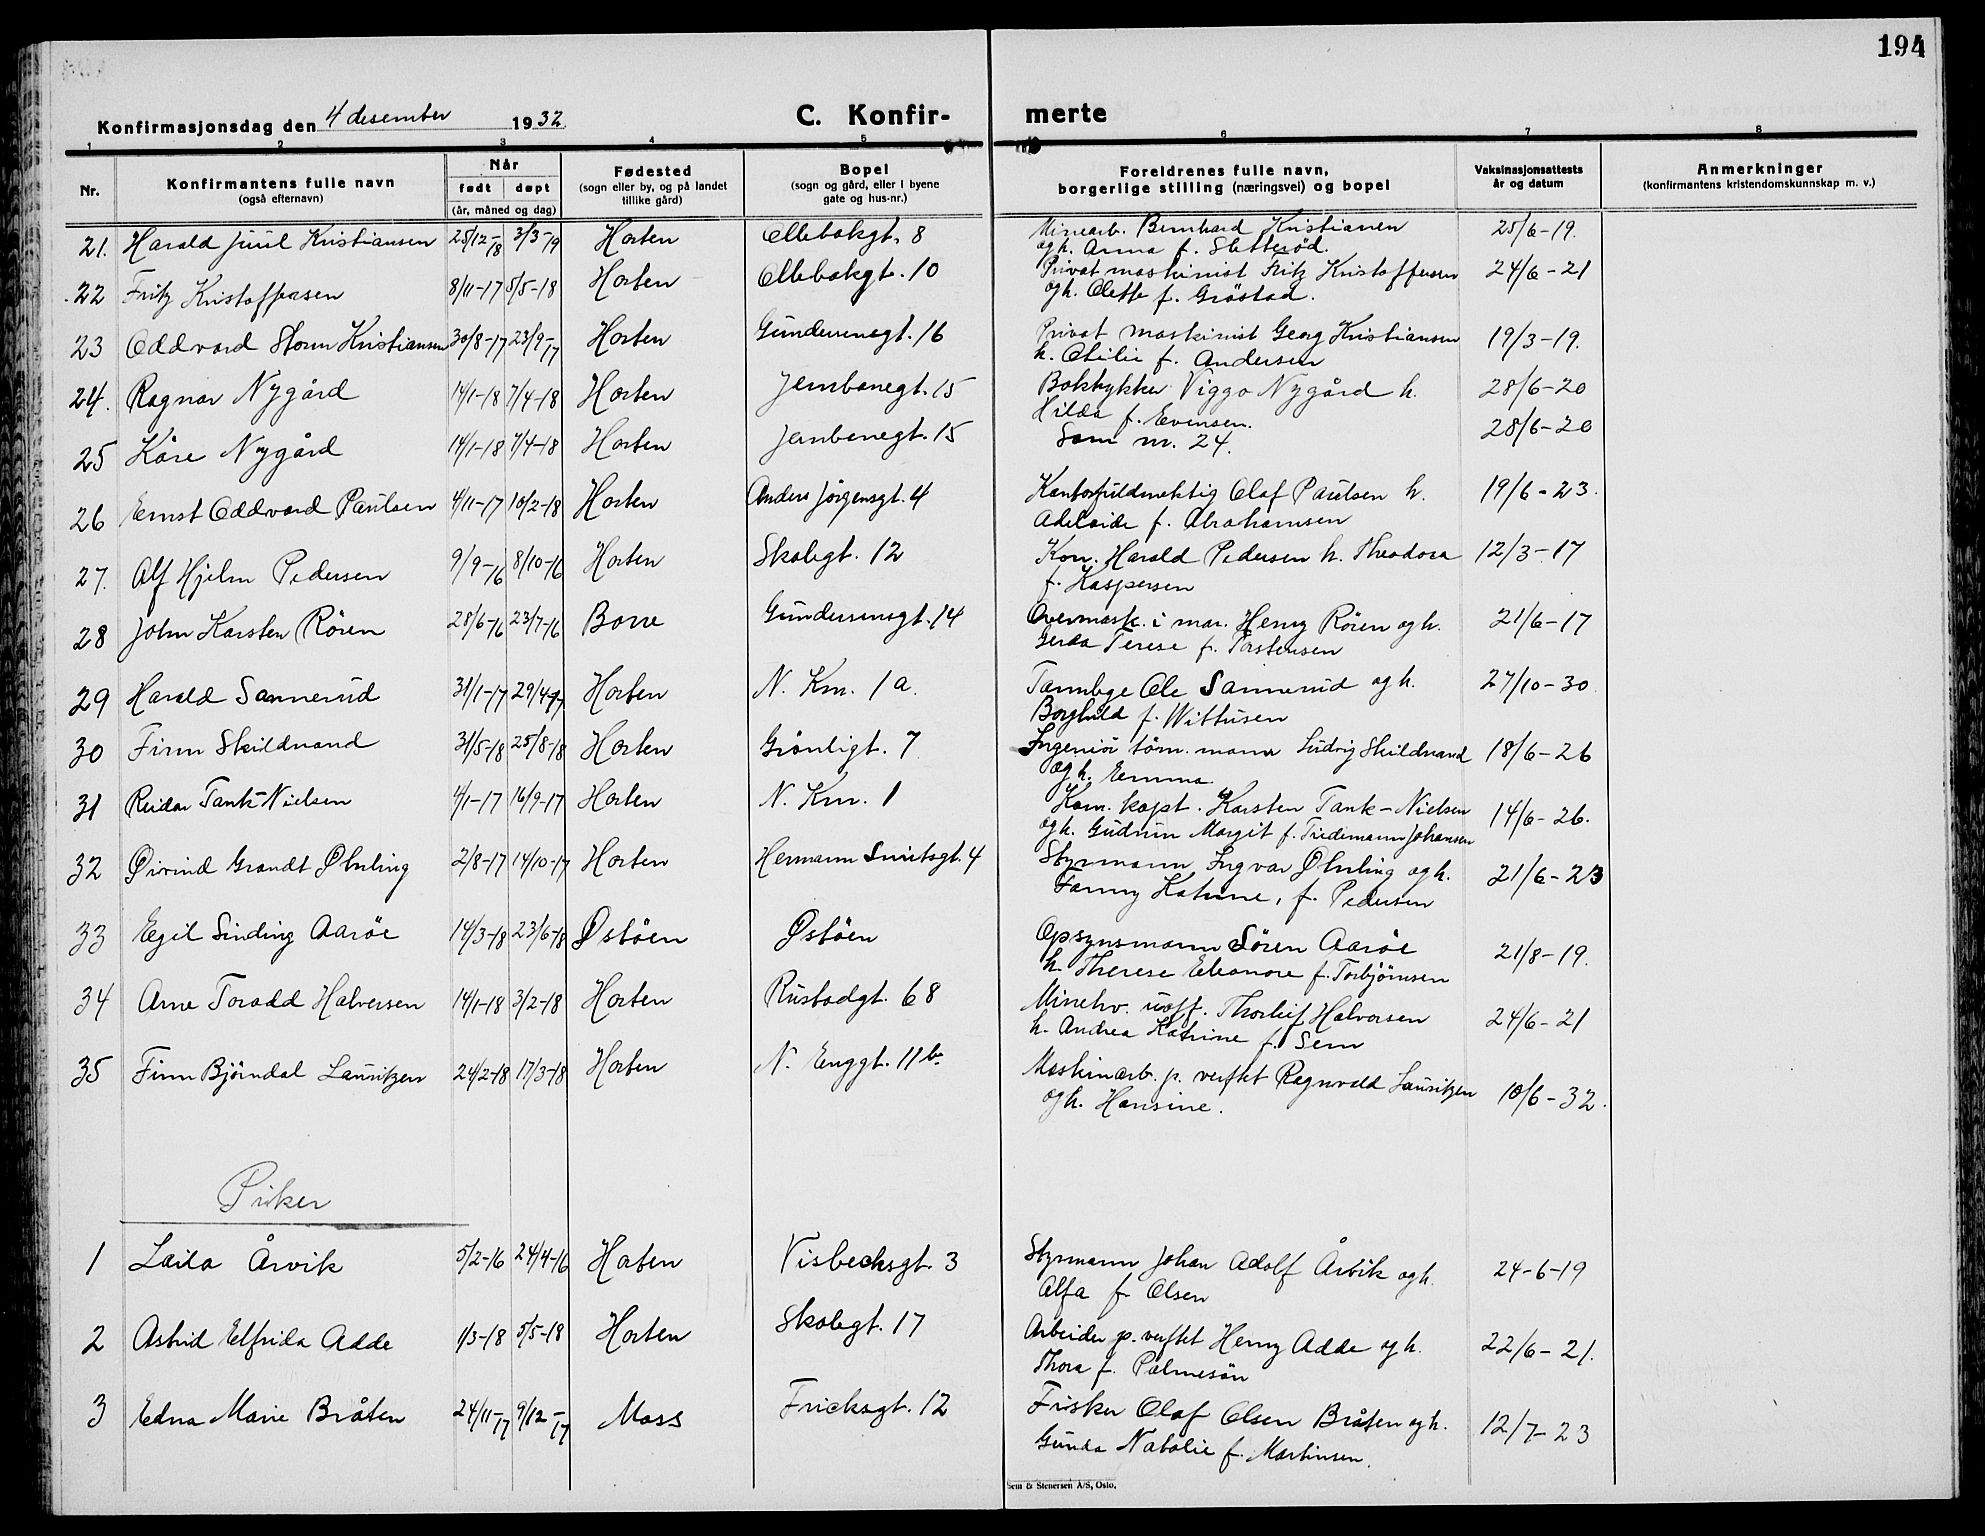 194
Konfirmasjonsdag den 4 desember 1932
C. Konfir-
merte
1 2 3 4 5 6 7 8
Nr.
Konfirmantens fulle navn
(også efternavn)
Når
født døpt
(år, måned og dag)
Fødested
(sogn eller by, og på landet
tillike gård)
Bopel
(sogn og gård, eller i byene
gate og hus-nr.)
Foreldrenes fulle navn,
borgerlige stilling (næringsvei) og bopel
Vaksinasjonsattests
år og datum
Anmerkninger
(konfirmantens kristendomskunnskap m. v.)
21. Harald Juul Kristiansen 25/12-18 3/3-19 Horten Ollebakgt. 8 Minearb. Bernhard Kristiansen 25/6-19.
og h. Anna f. Sletterød.
22 Fritz Kristoffersen 8/11-17 5/5-18 Horten Ollebakgt. 10 Privat maskinist Fritz Kristoffersen 24/6-21
og h. Olette f. Gröstad.
23 Oddvard Storm Kristiansen 30/8-17 23/9-17 Horten Gundersensgt. 16 Privat maskinist Georg Kristiansen 19/3-19.
h. Otilie f. Andersen
24. Ragnar Nygård 14/1-18 7/4-18 Horten Jernbanegt. 15 Boktrykker Viggo Nygård h. 28/6-20
Hilda f. Evensen.
25 Kåre Nygård 14/1-18 7/4-18 Horten Jernbanegt. 15 Som nr. 24. 28/6-20
26 Ernst Oddvard Paulsen 4/11-17 10/2-18 Horten Anders Jörgensgt. 4 Kontorfuldmektig Olaf Paulsen h. 19/6-23.
Adelaide f. Abrahamsen
27. Alf Hjelm Pedersen 9/9-16 8/10-16 Horten Skolegt. 12 Kon. Harald Pedersen h. Theodora 12/3-17
f. Kaspersen
28 John Karsten Rören 28/6-16 23/7-16 Borre Gundersensgt. 14 Overmask. i mar. Henry Rören og h. 21/6-17
Gerda Terese f. Torstensen
29 Harald Sannerud 31/1-17 29/4-17 Horten N. Km. 1a. Tannlege Ole Sannerud og h. 27/10-30
Borghild f. Withusen
30 Finn Skildnand 31/5-18 25/8-18 Horten Grönligt. 7 Ingeniör töm. mann Ludvig Skildnand 18/6-26
og h. Emma.
31 Reidar Tank-Nielsen 4/1-17 16/9-17 Horten N. Km. 1 Kom. kapt. Karsten Tank-Nielsen 14/6-26.
og h. Gudrun Margit f. Tiedemann Johansen
32 Øivind Grandt Øhrling 2/8-17 14/10-17 Horten Hermann Smitsgt. 4 Styrmann Ingvar Øhrling og h. 21/6-23
Fanny Katrine, f. Pedersen
33 Egil Sinding Aaröe 14/3-18 23/6-18 Østöen Østöen Opsynsmann Sören Aaröe 21/8-19.
h. Therese Eleonore f. Torbjörnsen
34 Arne Toradd Halversen 14/1-18 3/2-18 Horten Rustadgt. 68 Minehv. uoff. Thorleif Halvorsen 24/6-21
h. Andrea Katrine f. Sem
35 Finn Björndal Lauritzen 24/2-18 17/3-18 Horten N. Enggt. 11b. Maskinarb. p. verftet Ragnvald Lauritzen 10/6-32.
og h. Hansine.
Piker
1 Laila Årvik 5/2-16 24/4-16 Horten Visbechsgt. 3 Styrmann Johan Adolf Årvik og h. 24-6-19
Alfa f. Olsen
2 Astrid Elfrida Adde 1/3-18 5/5-18 Horten Skolegt. 17 Arbeider p. verftet Henry Adde og h. 22/6-21.
Thora f. Palmesön
3 Edna Marie Bråten 24/11-17 9/12-17 Moss Fricksgt. 12 Fisker Olaf Olsen Bråten og h. 12/7-23
Gunda Natalie f. Martinsen.
Sem & Stenersen A/S, Oslo.